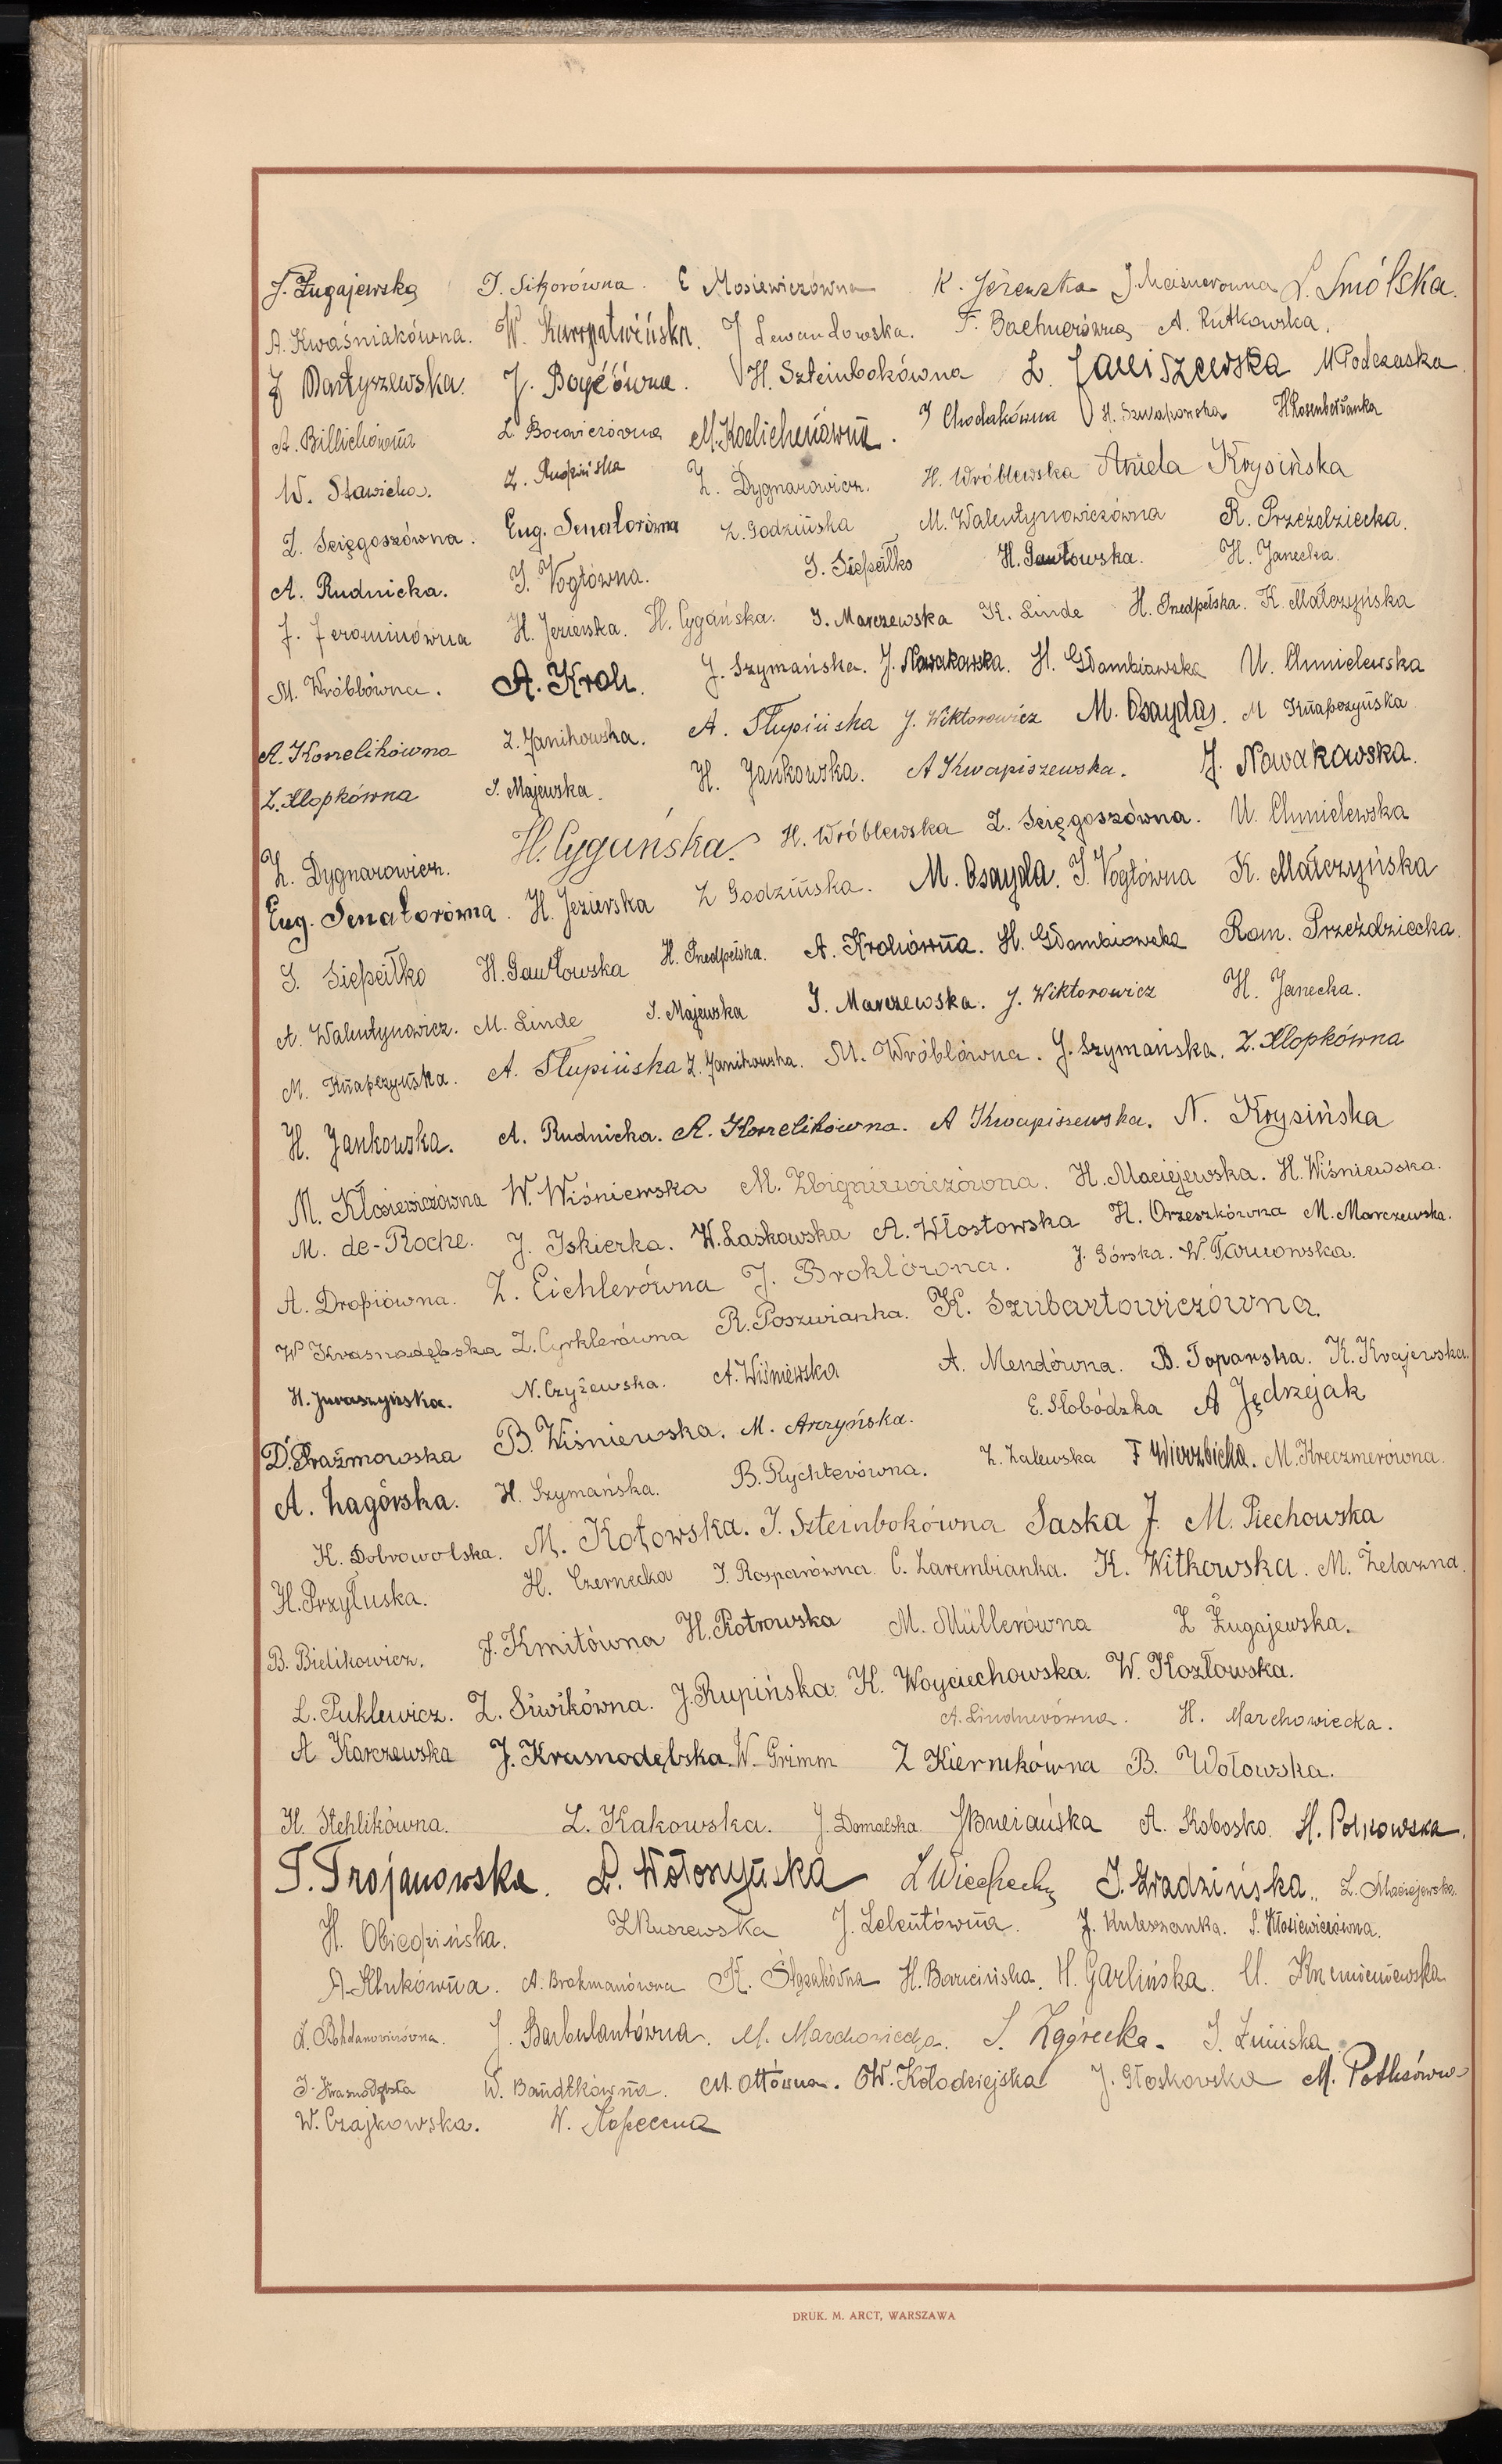 J. Żugajewska I. Sikorówna. E Mosiewiczówna K. Jeżewska J. Meisnerówna L. Smólska.
A. Kwaśniakówna. W. Kuropatwińska. J Lewandowska. F. Bachnerówna A. Rutkowska.
J Bartyszewska. J. Boyéówna. H. Szteinbokówna L. Janiszewska M Podczaska.
A. Billichówna L. Borowiczówna M. Koelichenówna. J Chodakówna H. Szwapowska H Rosenbeżanka
W. Sławicka. Z. Rupińska Z. Dygnarowicz. H. Wróblewska Aniela Krysińska
Z. Ścięgoszówna. Eug. Senatorówna Z. Godzińska M. Walentynowiczówna R. Przeździecka.
A. Rudnicka. I. Vogtówna. S. Siepiełko H. Gawłowska. H. Janecka.
J. Jerominówna H. Jezierska. H. Cygańska. I. Marczewska K. Linde H. Śnedpelska. K. Małczyńska
M. Wróblówna. A. Kroh. J. Szymańska. J. Nowakowska. H. Głambiowska U. Chmielewska
A. Korzelikówna Z. Janikowska. A. Słupińska J. Wiktorowicz M. Osayda. M Knapczyńska
Z. Kłopkówna I. Majewska. H. Jankowska. A Kwapiszewska. J. Nowakowska.
Z. Dygnarowicz. H. Cygańska. H. Wróblewska Z. Ścięgoszówna. U. Chmielewska
Eug. Senatorówna. H. Jezierska Z Godzińska. M. Osayda. I. Vogtówna K. Małczyńska
S. Siepiełko H. Gawłowska H. Śnedpelska. A. Krohówna. H. Głambiowska Rom. Przeździecka.
A. Walentynowicz. M. Linde I. Majewska I. Marczewska. J. Wiktorowicz H. Janecka.
M. Knapczyńska. A. Słupińska Z. Janikowska. M. Wróblówna. J. Szymańska. Z. Kłopkówna
H. Jankowska. A. Rudnicka. A. Korzelikówna. A Kwapiszewska. N. Krysińska
M. Kłosiewiczówna W. Wiśniewska M. Zbigniewiczówna. H. Maciejewska. H. Wiśniewska.
M. de-Roche. J. Iskierka. W. Laskowska A. Włostowska H. Orzeszkówna M. Marczewska.
A. Dropiówna. Z. Eichlerówna J. Broklówna. J. Górska. W. Tarnowska.
W Krasnodębska Z. Cyrklerówna R. Poszwianka. K. Szubartowiczówna.
H. Juraszyńska. N. Czyżewska. A. Wiśniewska A. Mendówna. B. Toporska. K. Krajewska.
D. Prażmowska B. Wiśniewska. M. Arczyńska. E. Słobódzka A Jędrzejak
A. Zagórska. H. Szymańska. B. Rychterówna. Z. Zalewska F Wierzbicka. M. Kreczmerówna.
K. Dobrowolska. M. Kotowska. I. Szteinbokówna Saska J. M. Piechowska
H. Przyłuska. H. Czernecka J. Rosparówna C. Zarembianka. K. Witkowska. M. Żelazna.
B. Bielikowicz. J. Kmitówna H. Piotrowska M. Müllerówna Z Żugajewska.
L. Puklewicz. Z. Siwikówna. J. Rupińska. K. Woyciechowska. W. Kozłowska.
A. Lindnerówna. H. Marchowiecka.
A Karczewska J. Krasnodębska. W. Grimm Z Kiernikówna B. Wołowska.
H. Stehlikówna. L. Kakowska. J. Domalska A. Kobosko.
T. Trojanowska. L. Wołonyńska I. Gradzińska. L. Maciejewska.
H. Obiedzińska. Z Kuszewska J. Lelentówna. J. Kuleszanka. S. Kłosiewiczówna.
A. Klukówna. A. Brokmanówna K. Ślązakówna H. Barcińska. H. Garlińska.
A. Bohdanowiczówna. J. Barbulantówna. M. Marchowiecka. S. Zgórecka. I. Żnińska
J. Krasnodębska W. Bandtkówna. M. Ottówna. W. Kołodziejska J. Głoskowska M.
W. Czajkowska. W. Kopeczna
DRUK. M. ARCT, WARSZAWA